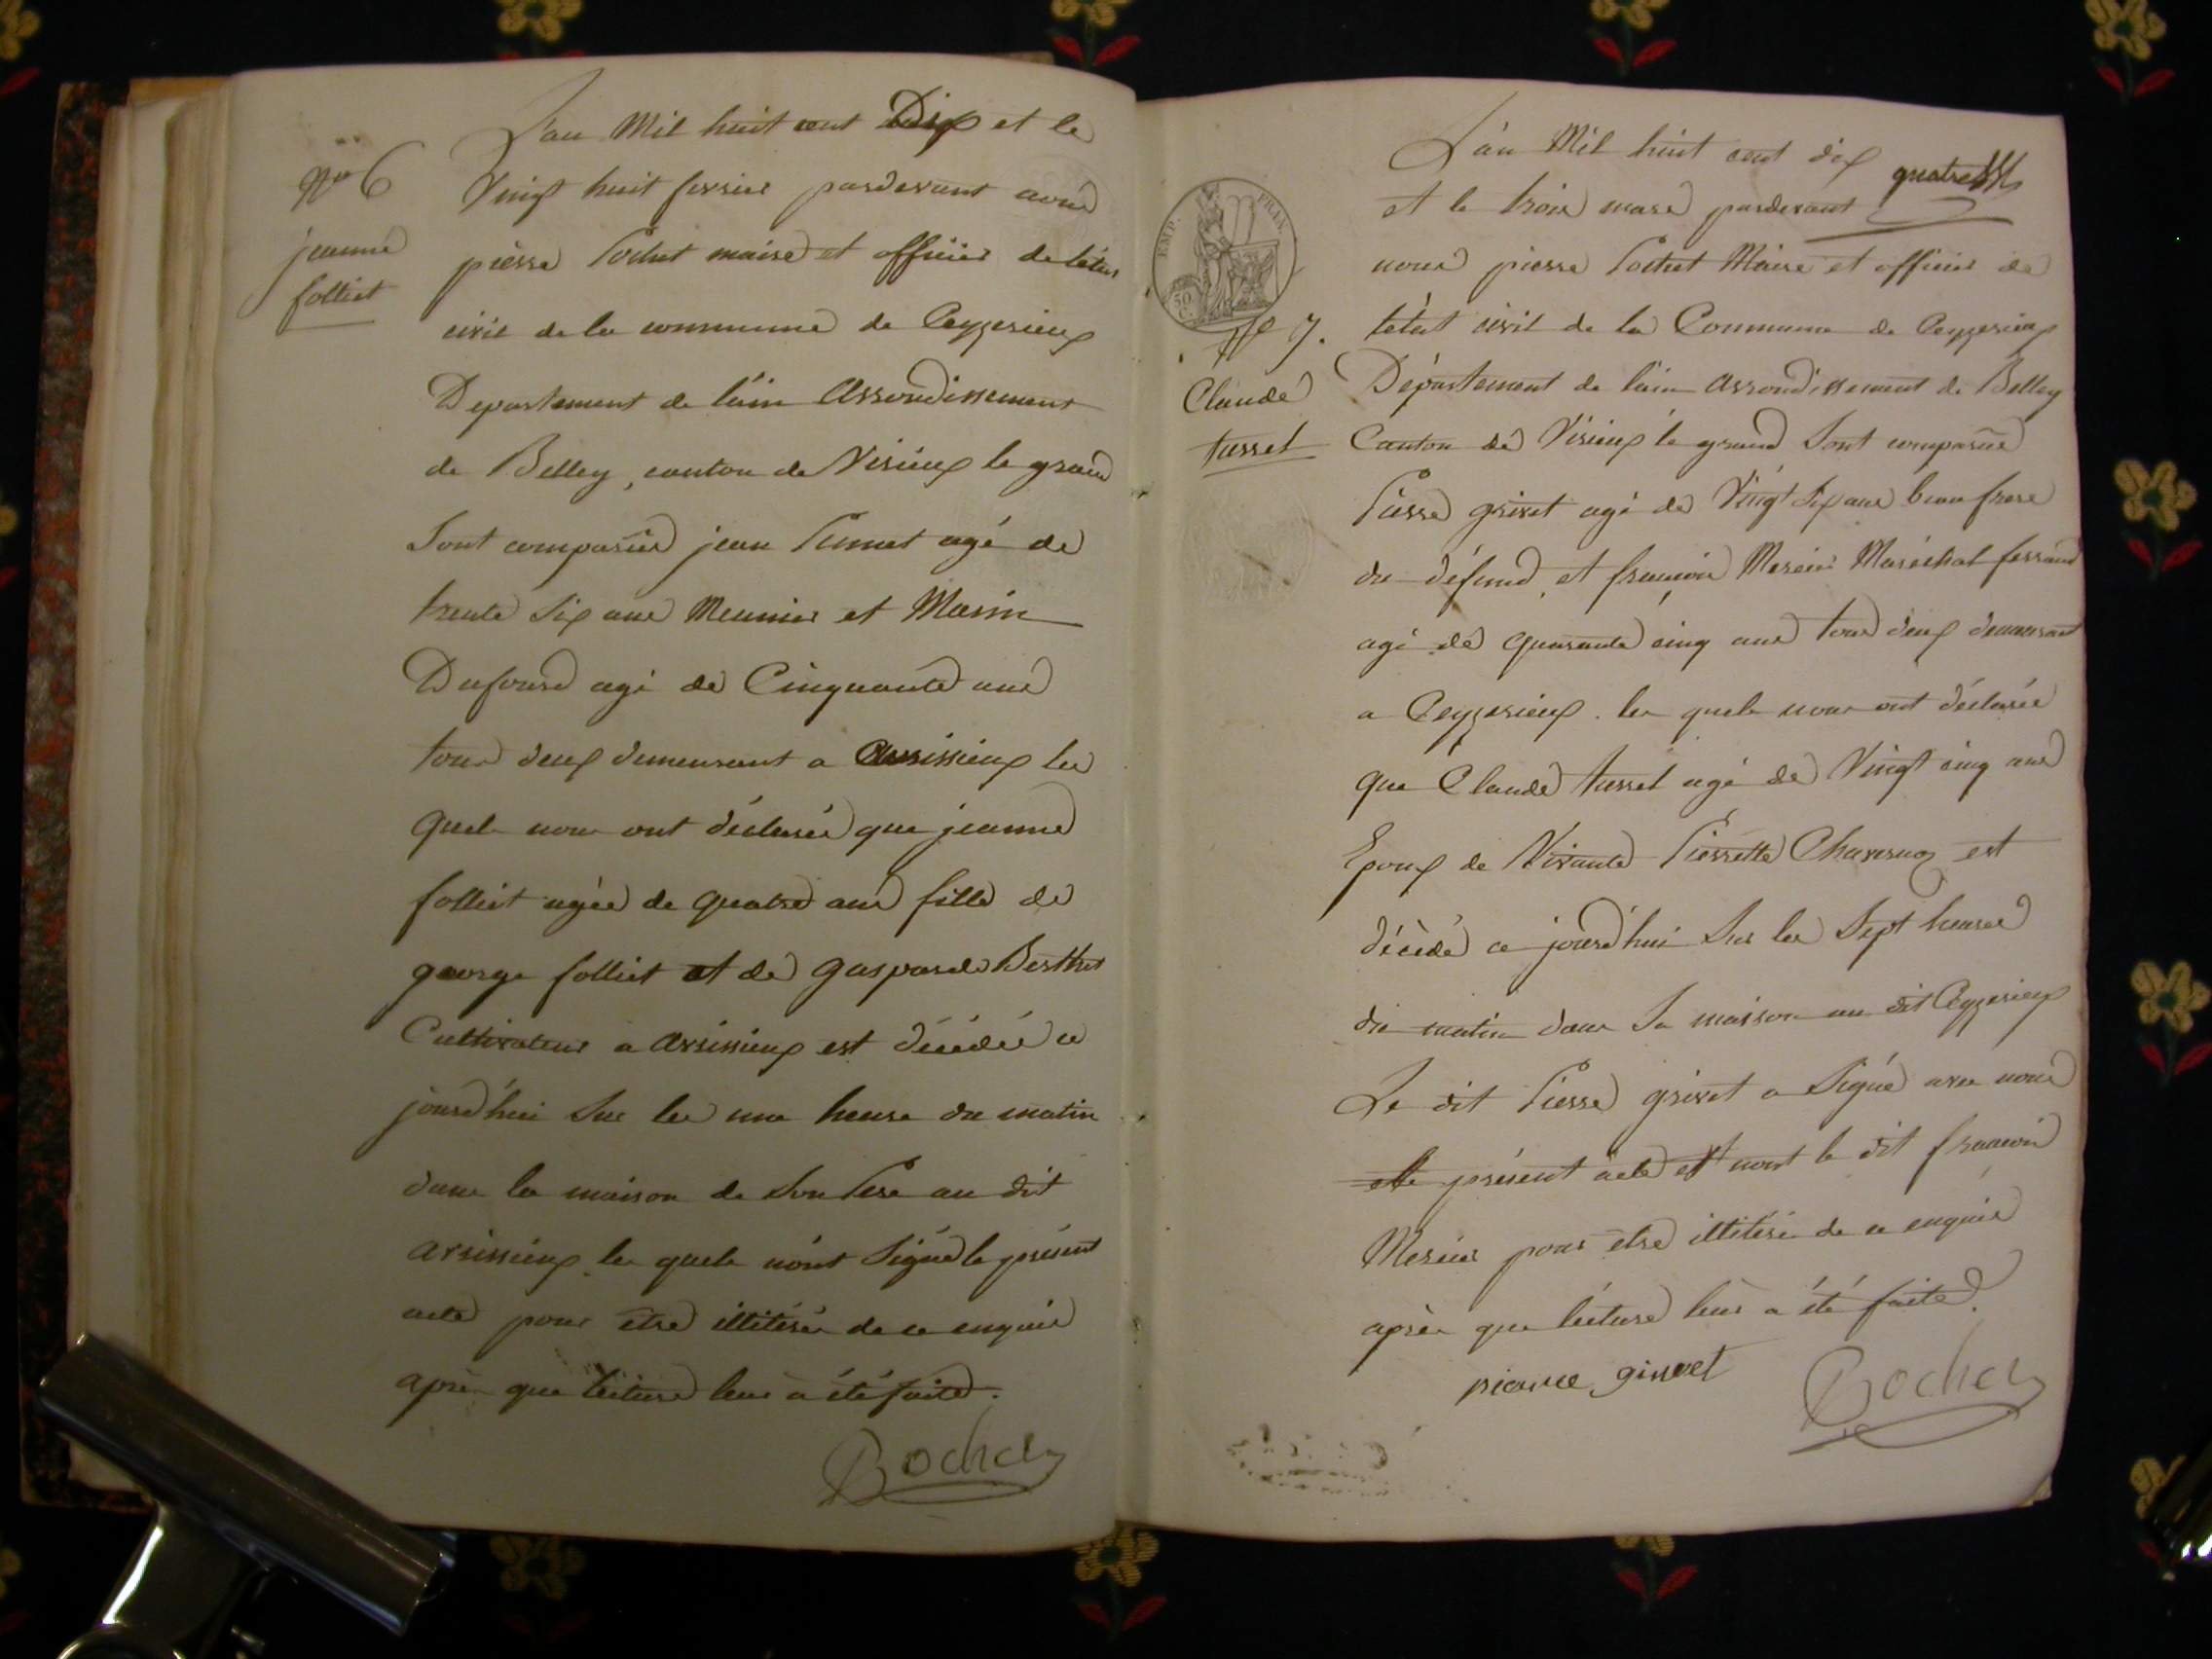 L'an Mil huit cent Dix et le
No 6
Vingt huit fevrier pardevant nous
jeanne
pierre Pochet maire et officier de létat
folliet
civil de la commune de Ceyzerieux
Departement de l'ain Arrondissement
de Belley, canton de Virieux le grand
Sont comparus jean agé de
trente Six ans Meunier et Marin
Dufour agé de Cinquante ans
tous deux demeurant a Avrissieux les
quels nous ont déclarés que jeanne
folliet agée de quatre ans fille de
george folliet et de gasparde Berthet
Cultivateur a avrissieux est décédée ce
jourd'hui Sur les une heure du matin
dans la maison de Son Pere au dit
avrissieux les quels n'ont Signé le présent
acte pour être illitérés de ce enquis
après que lécture leur à été faite.
Bochet
L'an Mil huit cent dix quatre
et le trois mars pardevant
EMP. FRAN.
50 C.
nous pierre Pochet Maire et officier de
No 7.
létat civil de la Commune de Ceyzerieux
Claude
Département de l'ain arrondissement de Belley
tusset
Canton de Virieux le grand Sont comparus
Pierre grivet agé de Vingt Six ans beau frere
du défunt, et françois Mercier Maréchal ferrand
agé de quarante cinq ans tous deux demeurant
a Ceyzerieux. les quels nous ont déclarés
que Claude tusset agé de Vingt cinq ans
Epoux de Vivante Pierrette est
décédé ce jourd'hui Sur les Sept heures
du matin dans Sa maison au dit Ceyzerieux
Le dit Pierre grivet a Signé avec nous
le présent acte et nont le dit françois
Mercier pour être illitéré de ce enquis
après que lécture leur a été faite.
pierre givvet
Bochet